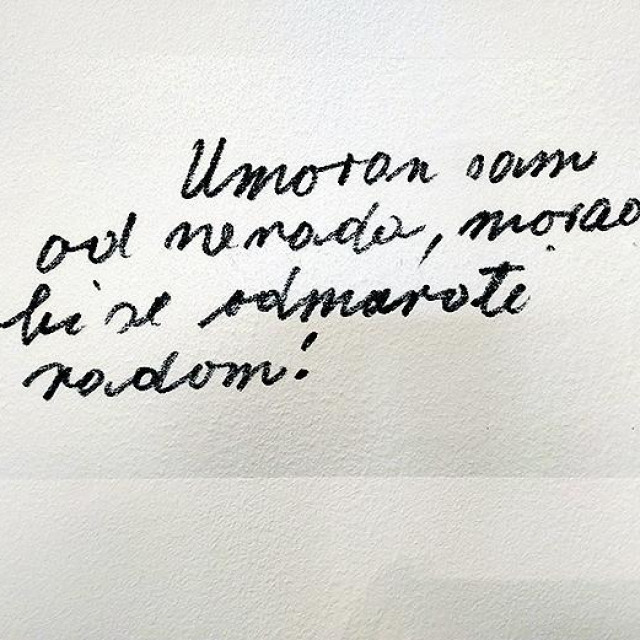 Umoran sam
od nerada, morao
bi se odmarati
radom!